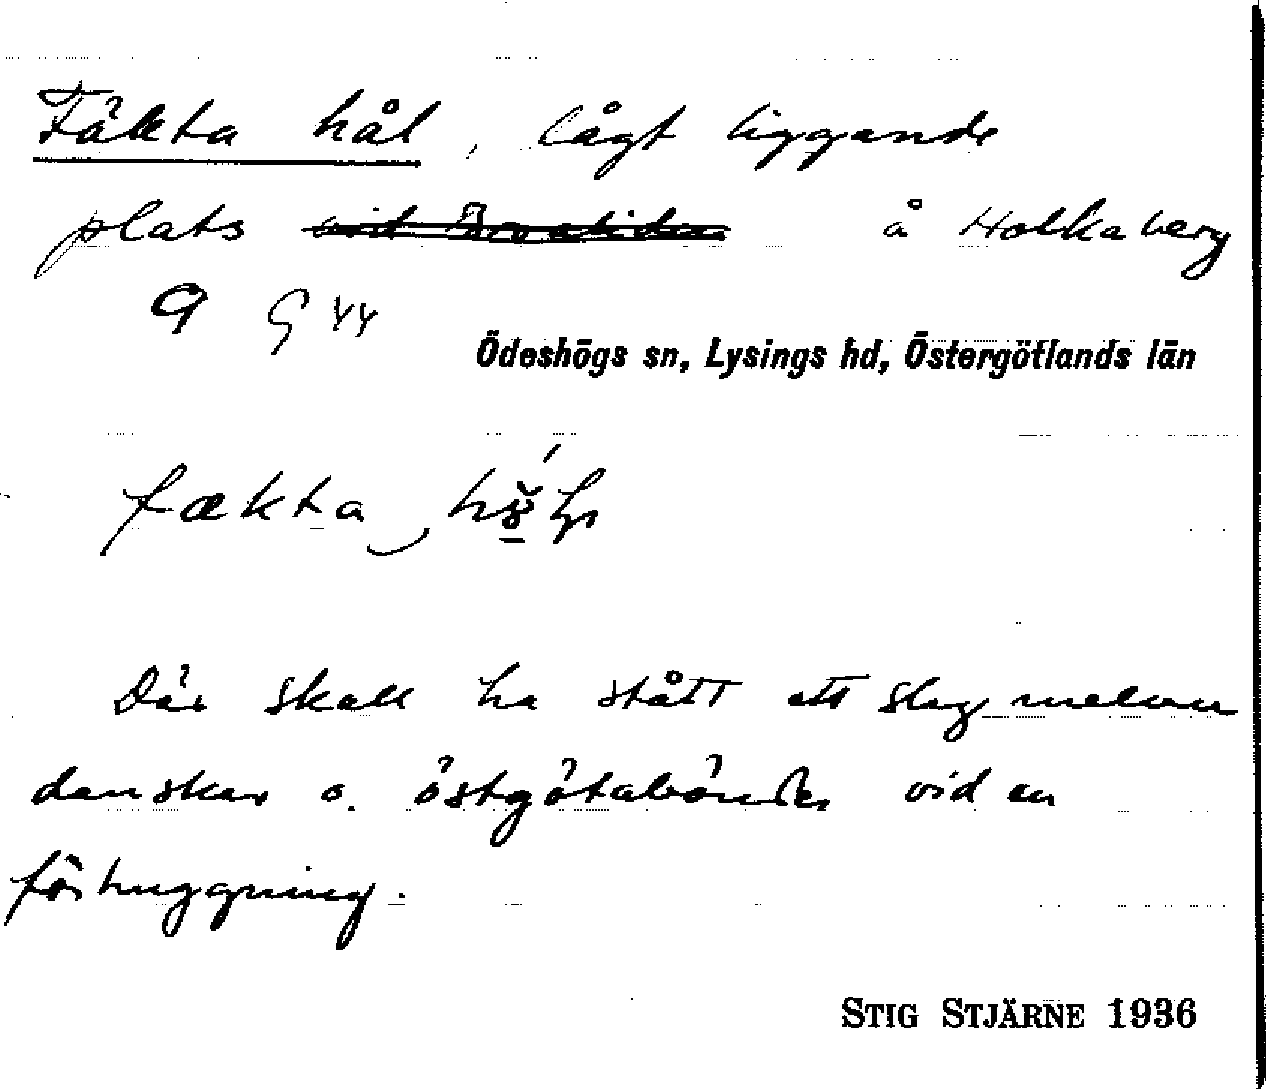 Fäkta hål, lågt liggande
plats å Holkaberg
9 G 44
Ödeshögs sn, Lysings hd, Östergötlands län
fækta
Där skall ha stått ett slag mellan
danskar o. östgötabönder vid en
förhuggning.
STIG STJÄRNE 1936